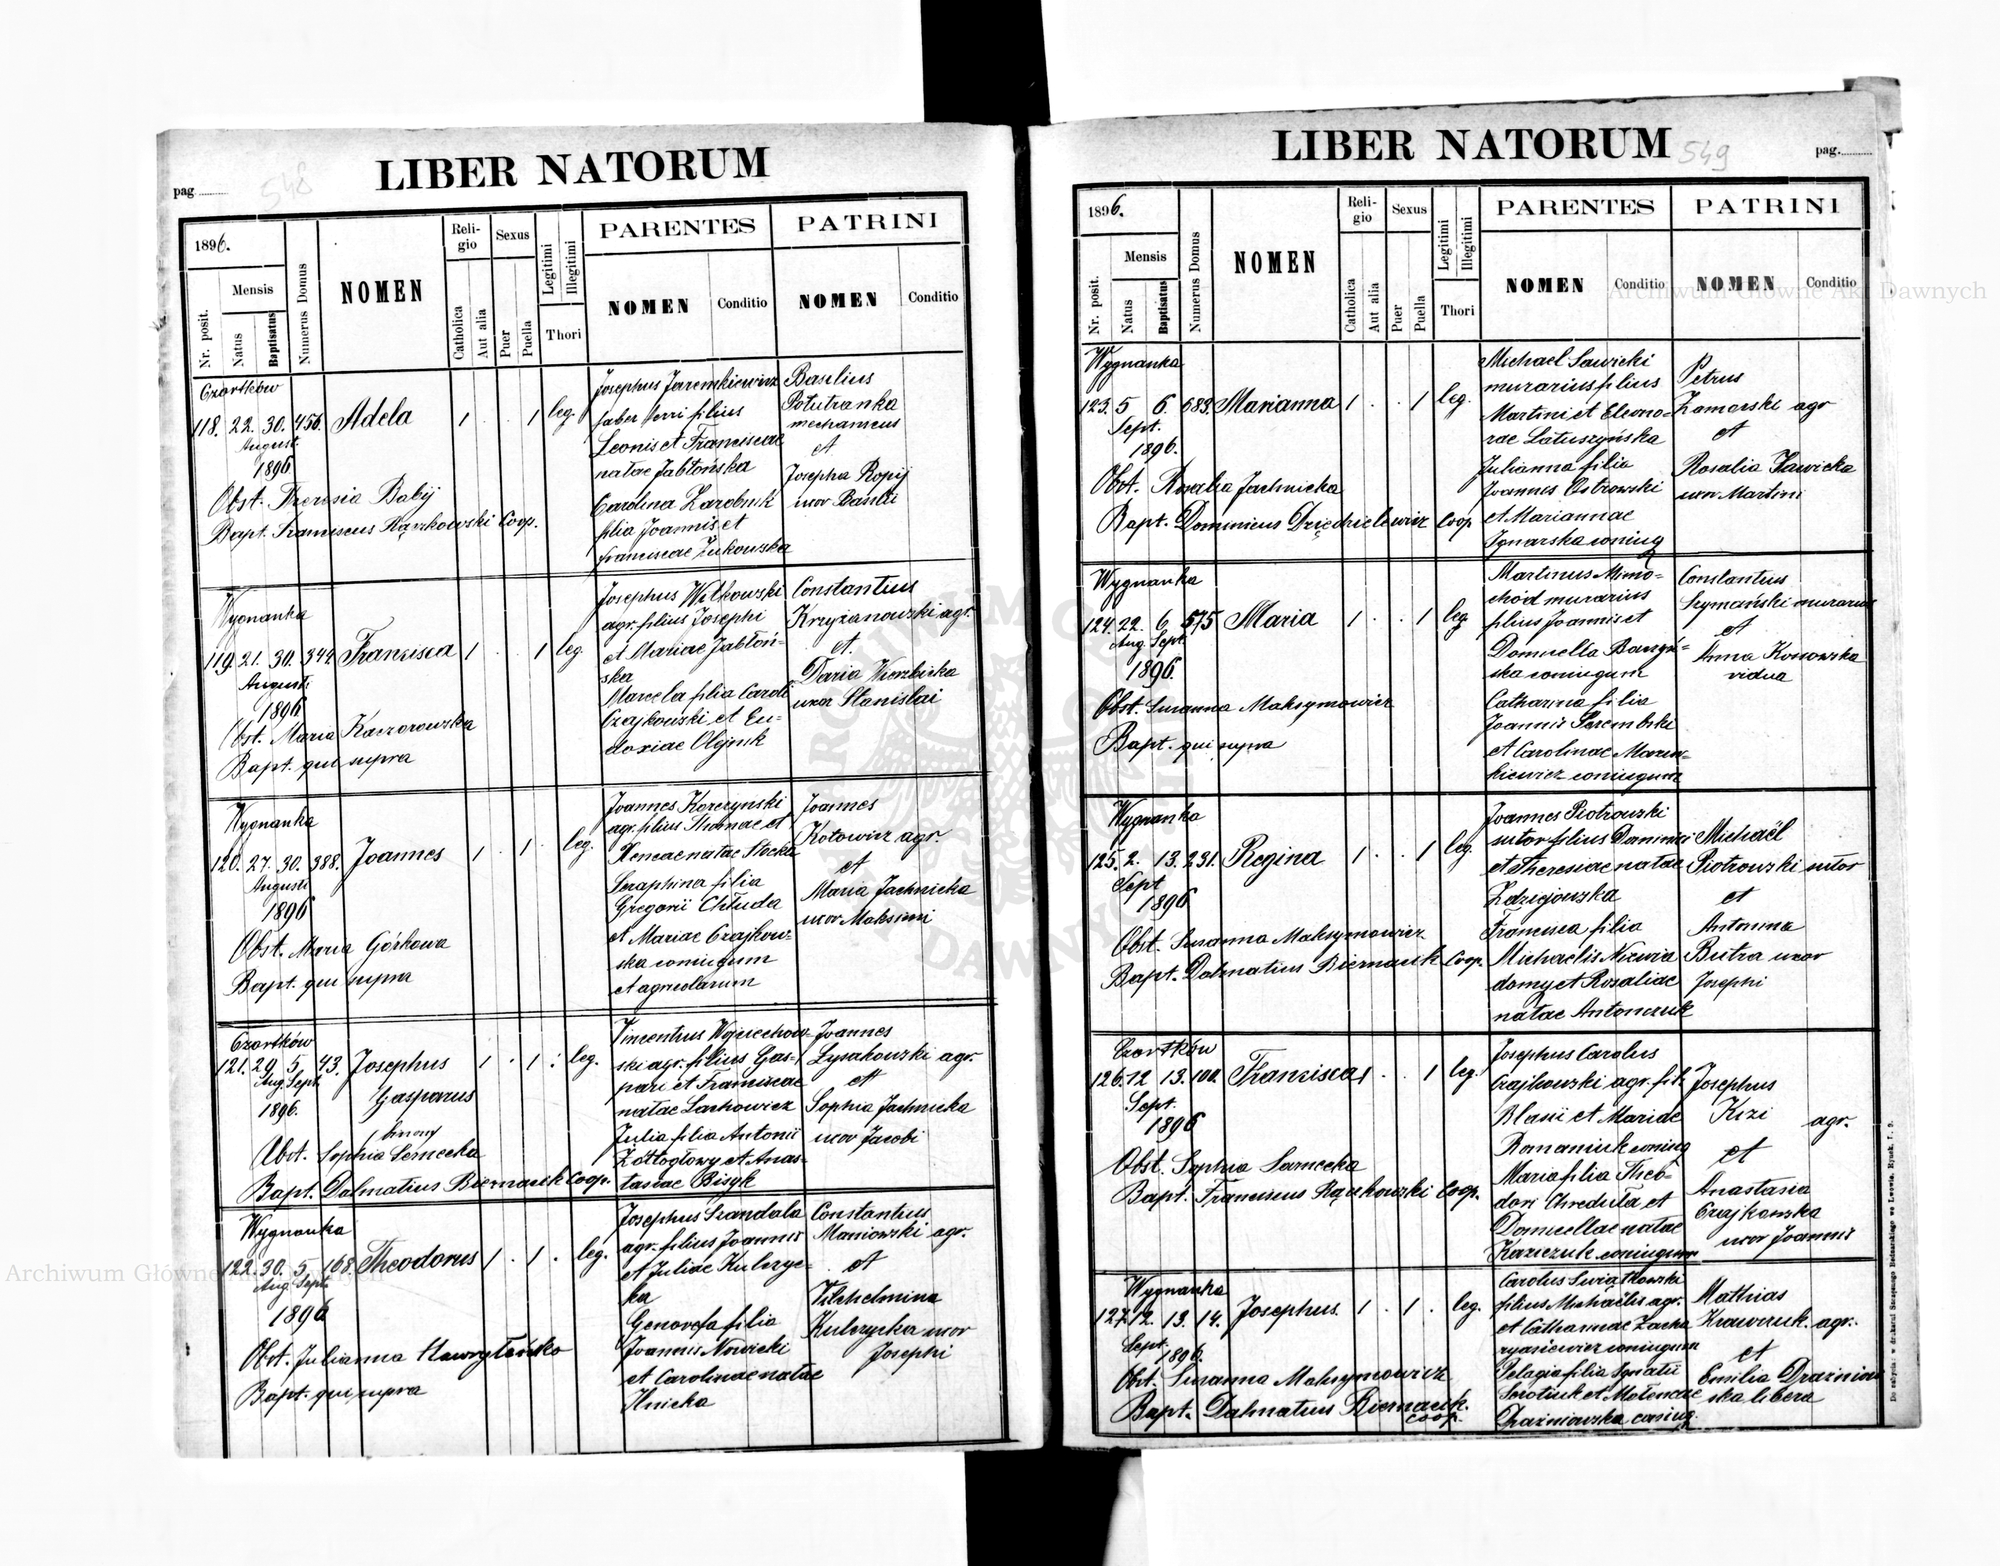 LIBER NATORUM
pag
548
1896.
Nr. posit.
Mensis
Natus
Baptisatus
Numerus Domus
NOMEN
Religio
Catholica
Aut alia
Sexus
Puer
Puella
Legitimi
Illegitimi
Thori
PARENTES
NOMEN
Conditio
PATRINI
NOMEN
Conditio
Czortków
118. 22. 30. 456. Adela 1 . . 1 leg.
August.
1896
Obst. Theresia Babij
Bapt. Franciscus Rączkowski Coop.
Josephus Jaremkiewicz
faber ferri filius
Leonis et Franciscae
natae Jabłońska
Carolina Zarobnik
filia Joannis et
Franciscae Żukowska
Basilius
Poturanka
mechanicus
et
Josepha Ropij
uxor Basilii
Wygnanka
119. 21. 30. 344 Francisca 1 . . 1 leg.
Augusti
1896
Obst. Maria Kaczorowska
Bapt. qui supra
Josephus Witkowski
agr. filius Josephi
et Mariae Jabłoń-
ska
Marcela filia Caroli
Czajkowski et Eu-
doxiae Olijnik
Constantius
Krzyżanowski agr.
et.
Daria Wierzbicka
uxor Stanislai
Wygnanka
120. 27. 30. 388. Joannes 1 . 1 . leg.
Augusti
1896
Obst. Maria Górkowa
Bapt. qui supra
Joannes Korczynski
agr. filius Thomae et
Xeneae natae Stecka
Seraphina filia
Gregorii Chłuda
et Mariae Czajkow-
ska coniugum
et agricolarum
Joannes
Kotowicz agr.
et
Maria Jachnicka
uxor Maksimi
Czortków
121. 29. 5. 43. Josephus 1 . 1 . leg.
Aug. Sept.
1896. Gasparus
(binom)
Obst. Sophia Sernecka
Bapt. Dalmatius Biernacik Coop.
Vincentius Wojciechow-
ski agr. filius Gas-
pari et Franciscae
natae Lachowicz
Julia filia Antonii
Żółtogłowy et Anas-
tasiae Bisyk
Joannes
Lysakowski agr.
et
Sophia Jachnicka
uxor Jacobi
Wygnanka
122. 30. 5. 168. Theodorus 1 . 1 . leg.
Aug. Sept.
1896
Obst. Julianna Hawryłeńko
Bapt. qui supra
Josephus Szandala
agr. filius Joannis
et Juliae Kulczyc-
ka
Genovefa filia
Joannis Nowicki
et Carolinae natae
Ilnicka
Constantius
Maniowski agr.
et
Vilhelmina
Kulczycka uxor
Josephi
LIBER NATORUM
549
pag.
1896.
Nr. posit.
Mensis
Natus
Baptisatus
Numerus Domus
NOMEN
Religio
Catholica
Aut alia
Sexus
Puer
Puella
Legitimi
Illegitimi
Thori
PARENTES
NOMEN
Conditio
PATRINI
NOMEN
Conditio
Wygnanka
123. 5 6. 683. Marianna 1 . . 1 leg.
Sept.
1896.
Obst. Rosalia Jachnicka
Bapt. Dominicus Dziedzielewicz Coop
Michael Sawicki
murarius filius
Martini et Eleono-
rae Łatuszyńska
Julianna filia
Joannis Ostrowski
et Mariannae
Ignarska coniug
Petrus
Zamorski agr
et
Rosalia Sawicka
uxor Martini
Wygnanka
124. 22. 6. 575 Maria 1 . . 1 leg
Aug. Sept.
1896.
Obst. Susanna Maksymowicz
Bapt. qui supra
Martinus Mimo-
chod murarius
filius Joannis et
Domicella Baszyń-
ska coniugum
Catharina filia
Joannis Szrembski
et Carolinae Marcin-
kiewicz coniugum
Constantius
Szymański murarius
et
Anna Konowska
vidua
Wygnanka
125. 2. 13. 231. Regina 1 . . 1 leg.
Sept
1896
Obst. Susanna Maksymowicz
Bapt. Dalmatius Biernacik Coop.
Joannes Piotrowski
sutor filius Dominici
et Theresiae natae
Francisca filia
domy et Rosaliae
natae Antonczuk
Michaël
Piotrowski sutor
et
Antonina
Butra uxor
Josephi
Czortków
126. 12 13. 100. Francisca 1 . . 1 leg.
Sept.
1896
Obst. Sophia Sarnecka
Bapt. Franciscus Rączkowski Coop.
Josephus Carolus
Czajkowski agr. fil.
Blasii et Mariae
Romaniuk coniug
Maria filia Theo-
dori Chreduła et
Domicellae natae
Karczuk coniugum
Josephus
Kizi agr.
et
Anastasia
Czajkowska
uxor Joannis
Wygnanka
127. 12. 13. 14. Josephus. 1 . 1 . leg.
Sept.
1896.
Obst. Susanna Maksymowicz
Bapt. Dalmatius Biernacik.
Coop.
Carolus Swiątkowski
filius Michaelis agr.
et Catharinae Zacha
ryasiewicz coniugum
Pelagia filia Ignatii
Sorotiuk et Melenae
Drażniowska coniug.
Mathias
Krawczuk agr.
et
Emilia Drażniow
ska libera
Do nabycia: w drukarni Szczęsnego Bednarskiego we Lwowie, Rynek l. 9.
Archiwum Główne Akt Dawnych
Archiwum Główne Akt Dawnych
ARCHIWUM GŁÓWNE AKT DAWNYCH